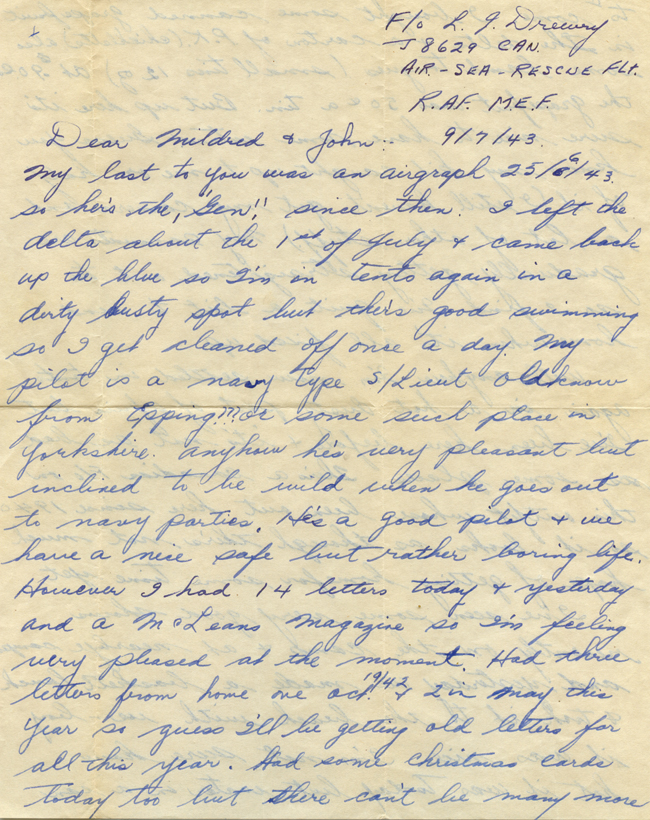 F/o L. J. Drewry
J8629 CAN.
AIR-SEA-RESCUE FLT.
R.A.F. M.E.F.
9/7/43.
Dear Mildred & John:-
My last to you was an airgraph 25/6/43.
so her's the, "Gen"! since then. I left the
delta about the 1st of July & came back
up the blue so I'm in tents again in a
dirty dusty spot but ther's good swimming
so I get cleaned off once a day. My
pilot is a navy type S/Lieut Oldknow
from Epping??? or some such place in
Yorkshire. Anyhow he's very pleasant but
inclined to be wild when he goes out
to navy parties. He's a good pilot & we
have a nice safe but rather boring life.
However I had 14 letters today & yesterday
and a McLeans Magazine so I'm feeling
very pleased at the moment. Had three
letters from home one oct. 19/42 & 2 in May this
year so guess I'll be getting old letters for
all this year. Had some Christmas cards
today too but there can't be many more